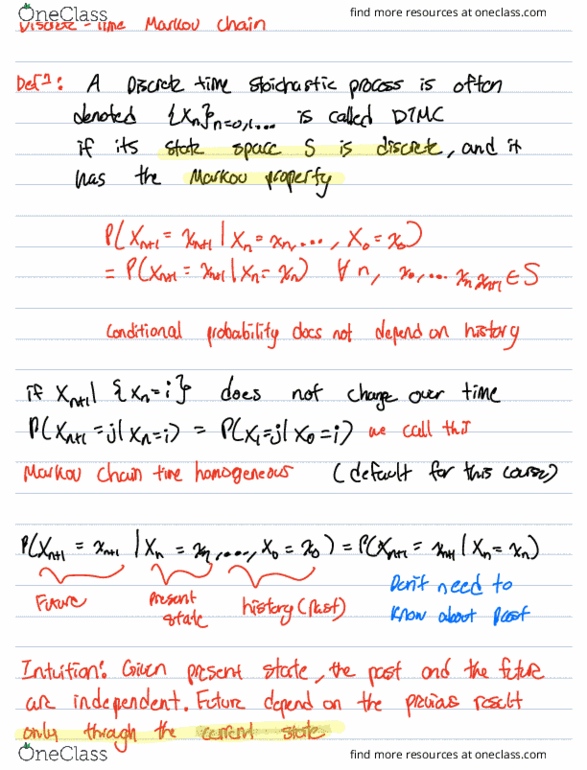 OneClass
find more resources at oneclass.com
Discrete-time Markov chain
Defn: A Discrete time stoichastic process is often
denoted {Xn}n=0,1,... is called DTMC
if its state space S is discrete, and it
has the Markov property
P(Xn+1 = xn+1 | Xn = xn, ..., X0 = x0)
= P(Xn+1 = xn+1 | Xn = xn) ∀ n, x0, ... xn xn+1 ∈ S
Conditional probability does not depend on history
if Xn+1 | {Xn = i} does not change over time
P(Xn+1 = j | Xn = i) = P(X1 = j | X0 = i) we call this
Markov Chain time homogeneous (default for this course)
P(Xn+1 = xn+1 | Xn = xn, ..., X0 = x0) = P(Xn+1 = xn+1 | Xn = xn)
Future present state history (past) Don't need to know about past
Intuition: Given present state, the past and the future
are independent. Future depend on the previous result
only through the current state
OneClass
find more resources at oneclass.com